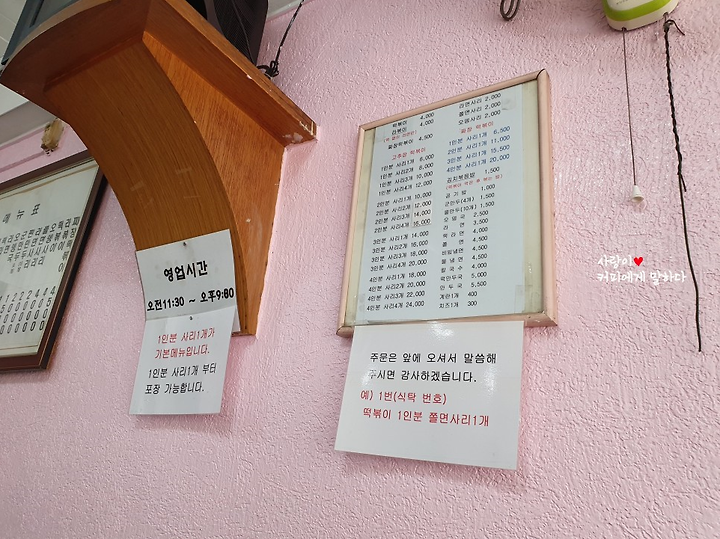 메뉴표
영업시간
오전11:30 ~ 오후9:80
1인분 사리1개가
기본메뉴입니다.
1인분 사리1개 부터
포장 가능합니다.
떡볶이 4,000
라볶이 4,000
짜장떡볶이 4,500
고추장 떡볶이
1인분 사리1개 6,000
1인분 사리2개 8,000
1인분 사리3개 10,000
1인분 사리4개 12,000
2인분 사리1개 10,000
2인분 사리2개 12,000
2인분 사리3개 14,000
2인분 사리4개 16,000
3인분 사리1개 14,000
3인분 사리2개 16,000
3인분 사리3개 18,000
3인분 사리4개 20,000
4인분 사리1개 18,000
4인분 사리2개 20,000
4인분 사리3개 22,000
4인분 사리4개 24,000
라면사리 2,000
쫄면사리 2,000
오뎅사리 2,000
짜장 떡볶이
1인분 사리1개 6,500
2인분 사리1개 11,000
3인분 사리1개 15,500
4인분 사리1개 20,000
김치볶음밥 1,500
공기밥 1,000
군만두(4개) 1,500
물만두(10개) 1,500
오뎅국 2,500
라면 3,500
떡라면 4,000
쫄면 4,500
비빔냉면 4,500
물냉면 4,500
칼국수 4,000
떡만두국 5,000
만두국 5,500
계란1개 400
치즈1개 300
주문은 앞에 오셔서 말씀해
주시면 감사하겠습니다.
예) 1번(식탁 번호)
떡볶이 1인분 쫄면사리1개
사랑이♥
커피에게 말하다